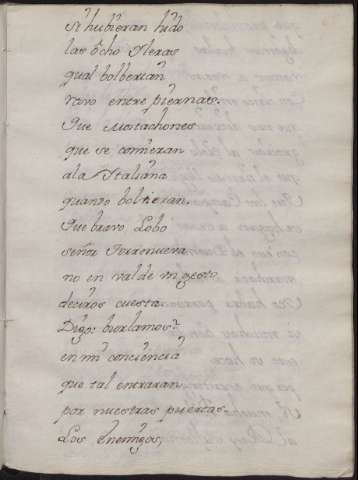 Si hubieran hido
las ocho Yleras
qual bolberian
ravo entre piernas.
Que Mostachones
que se comieran
a la Ytaliana
quanto bolvieran.
Que bravo Lobo
señor Torrenueva
no en valde mi gesto
deciros cuesta.
Digo: burlamos?
en mi conciencia
que tal entraran
por nuestras puertas
Los enemigos,